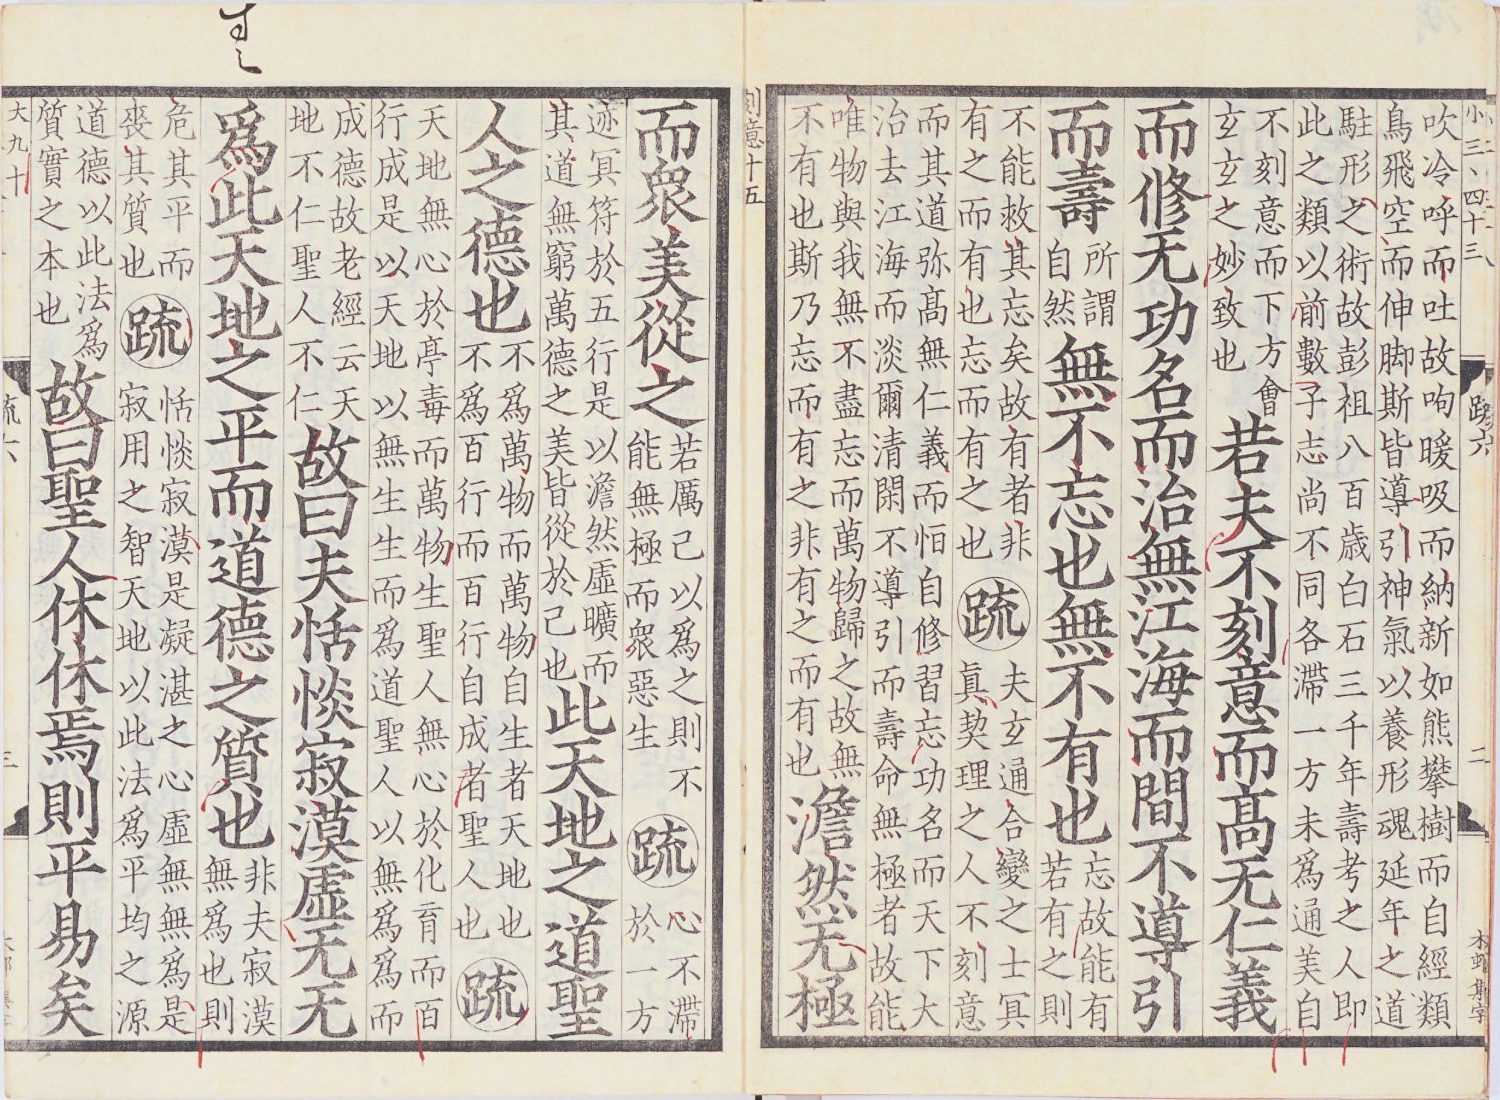 小三、四十三
疏六
二
吹冷呼而吐故呴暖吸而納新如熊攀樹而自經類
鳥飛空而伸脚斯皆導引神氣以養形魂延年之道
駐形之術故彭祖八百歳白石三千年壽考之人即
此之類以前數子志尚不同各滯一方未為通美自
不刻意而下方會
玄玄之妙致也
若夫不刻意而髙无仁義
而修无功名而治無江海而間不導引
而壽
所謂
自然
無不忘也無不有也
忘故能有
若有之則
不能救其忘矣故有者非
有之而有也忘而有之也
疏
夫玄通合變之士冥
真契理之人不刻意
而其道弥髙無仁義而恒自修習忘功名而天下大
治去江海而淡爾清閑不導引而壽命無極者故能
唯物與我無不盡忘而萬物歸之故無
不有也斯乃忘而有之非有之而有也
澹然无極
刻意十五
而衆美從之
若厲己以為之則不
能無極而衆惡生
疏
心不滯
於一方
迹冥符於五行是以澹然虛曠而
其道無窮萬德之美皆從於己也
此天地之道聖
人之德也
不為萬物而萬物自生者天地也
不為百行而百行自成者聖人也
疏
天地無心於亭毒而萬物生聖人無心於化育而百
行成是以天地以無生生而為道聖人以無為為而
成德故老經云天
地不仁聖人不仁
故曰夫恬惔寂漠虛无无
爲此天地之平而道德之質也
非夫寂漠
無為也則
危其平而
喪其質也
疏
恬惔寂漠是凝湛之心虛無無為是
寂用之智天地以此法為平均之源
道德以此法為
質實之本也
故曰聖人休休焉則平易矣
大九十
三